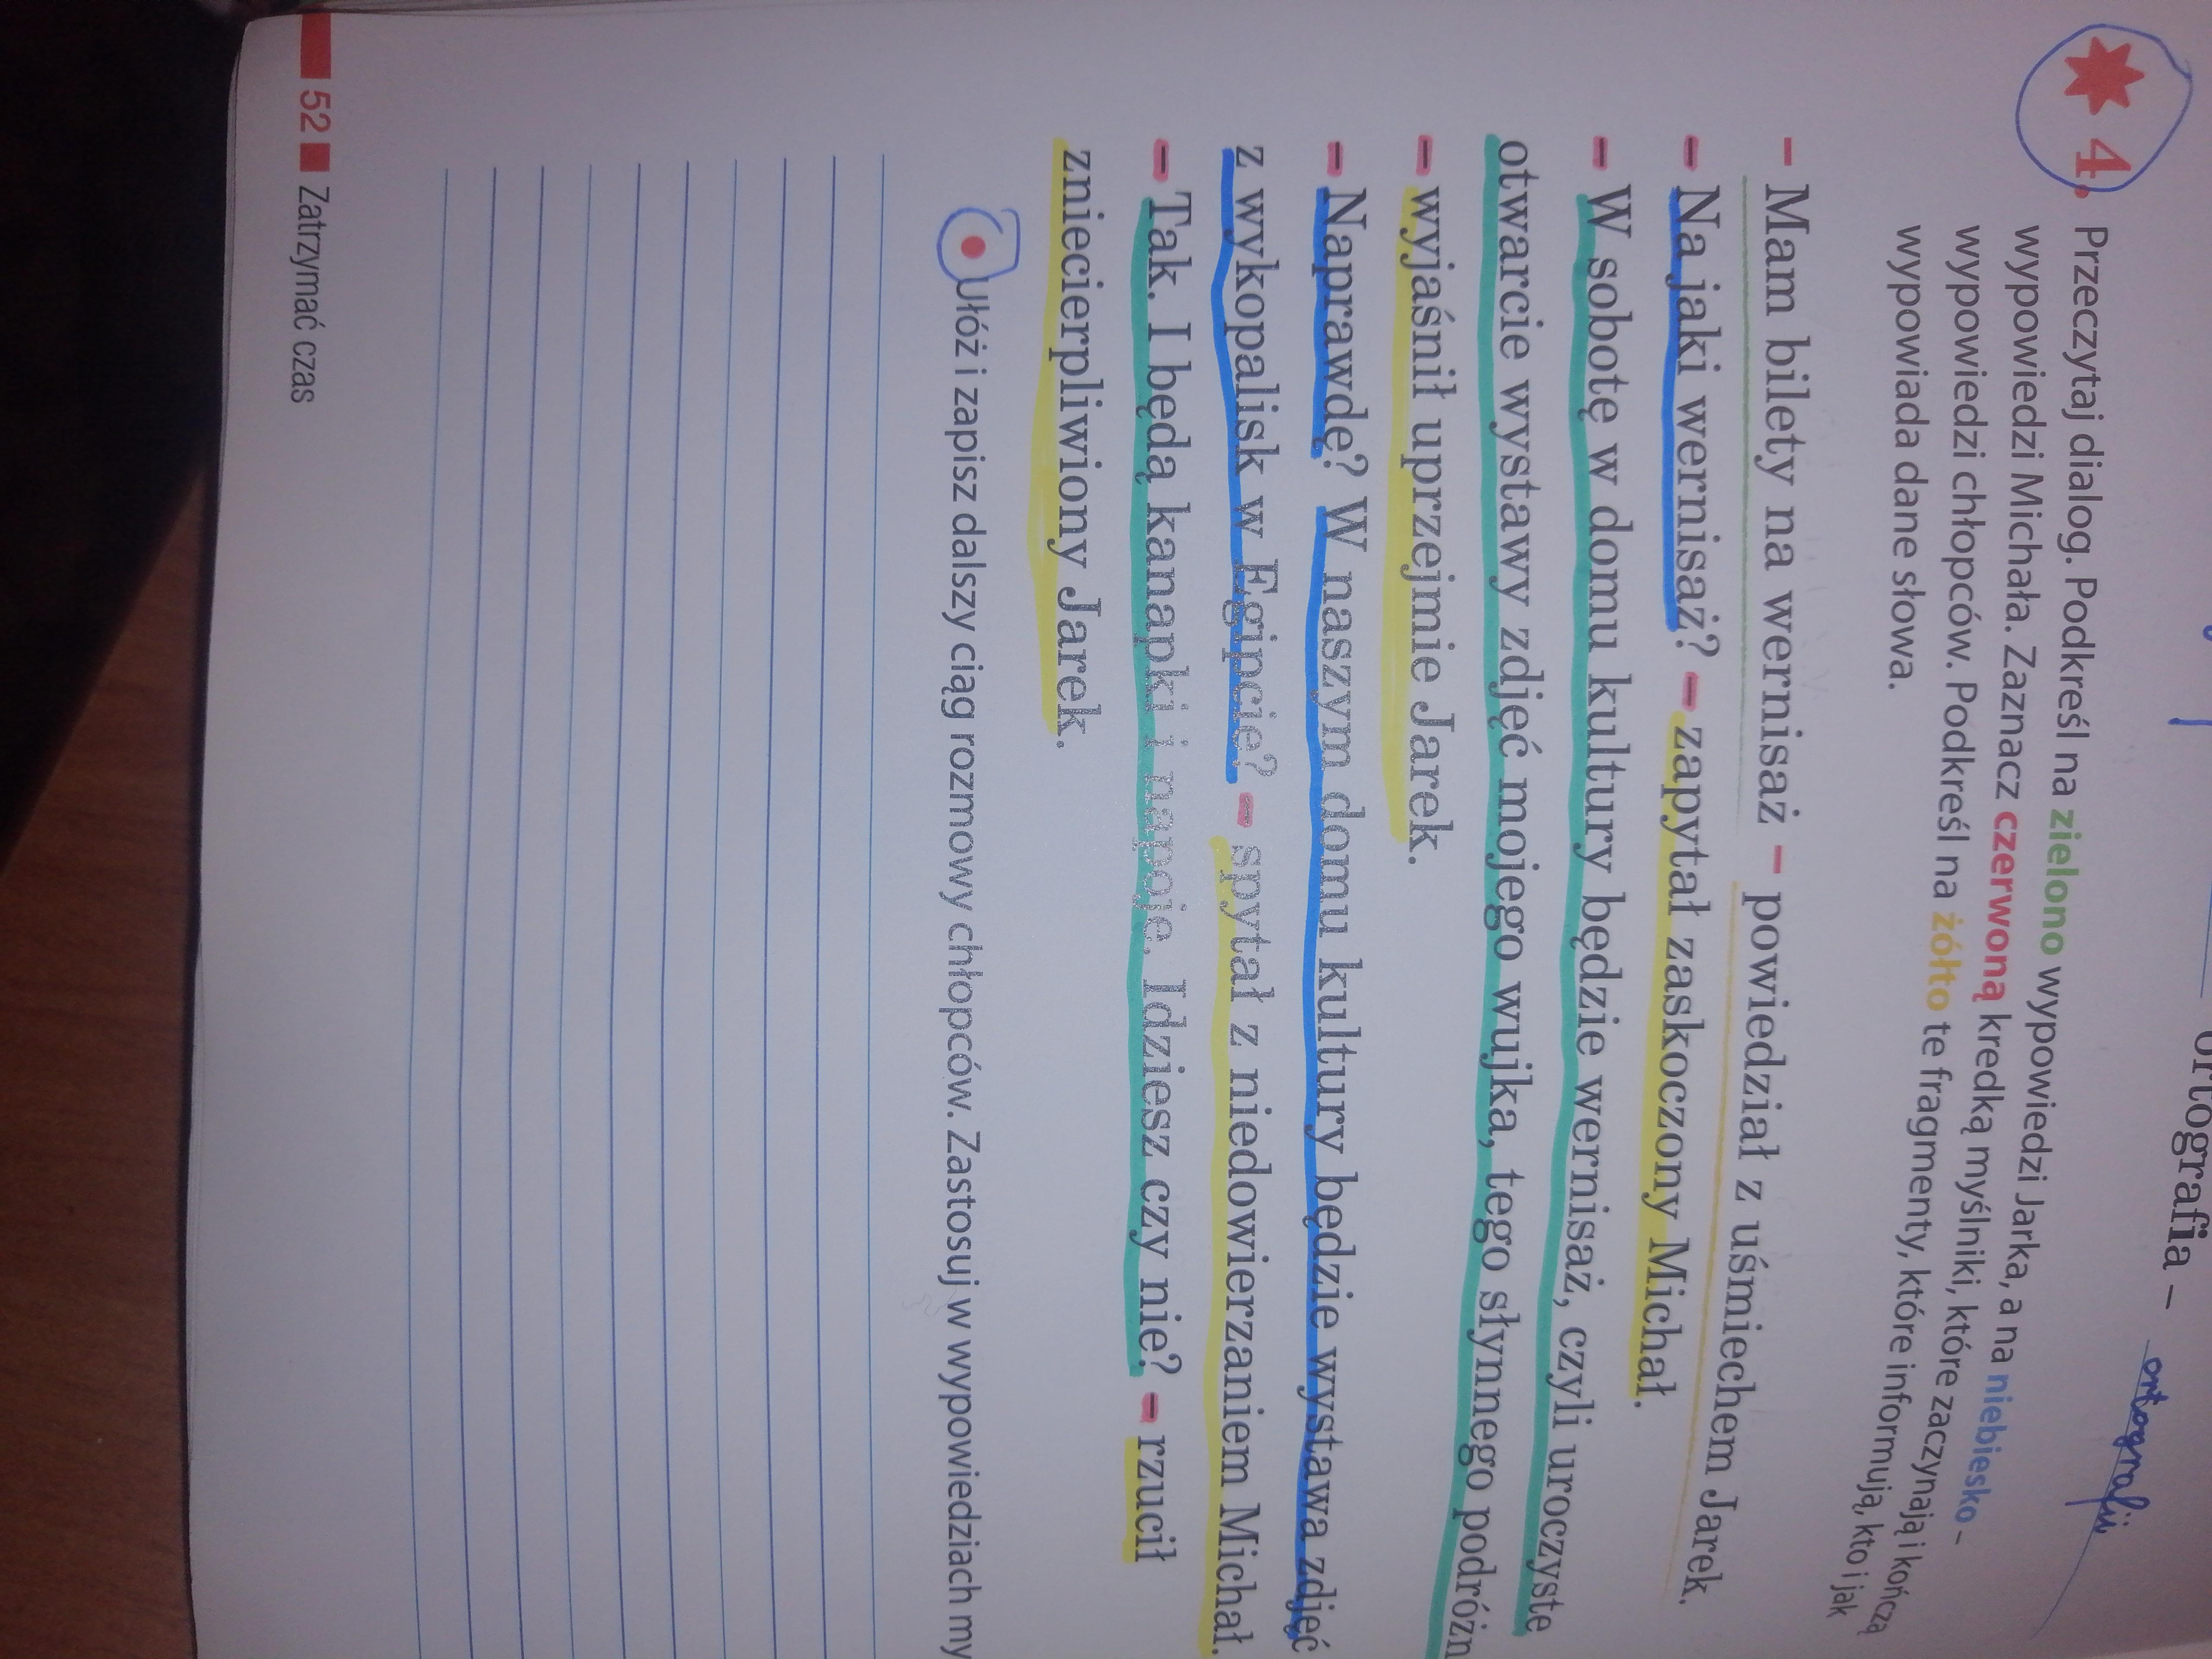 ortografia – ortografii
4. Przeczytaj dialog. Podkreśl na zielono wypowiedzi Jarka, a na niebiesko –
wypowiedzi Michała. Zaznacz czerwoną kredką myślniki, które zaczynają i kończą
wypowiedzi chłopców. Podkreśl na żółto te fragmenty, które informują, kto i jak
wypowiada dane słowa.
– Mam bilety na wernisaż – powiedział z uśmiechem Jarek.
– Na jaki wernisaż? – zapytał zaskoczony Michał.
– W sobotę w domu kultury będzie wernisaż, czyli uroczyste
otwarcie wystawy zdjęć mojego wujka, tego słynnego podróżn
– wyjaśnił uprzejmie Jarek.
– Naprawdę? W naszym domu kultury będzie wystawa zdjęć
z wykopalisk w Egipcie? – spytał z niedowierzaniem Michał.
– Tak. I będą kanapki i napoje. Idziesz czy nie? – rzucił
zniecierpliwiony Jarek.
Ułóż i zapisz dalszy ciąg rozmowy chłopców. Zastosuj w wypowiedziach my
52 Zatrzymać czas